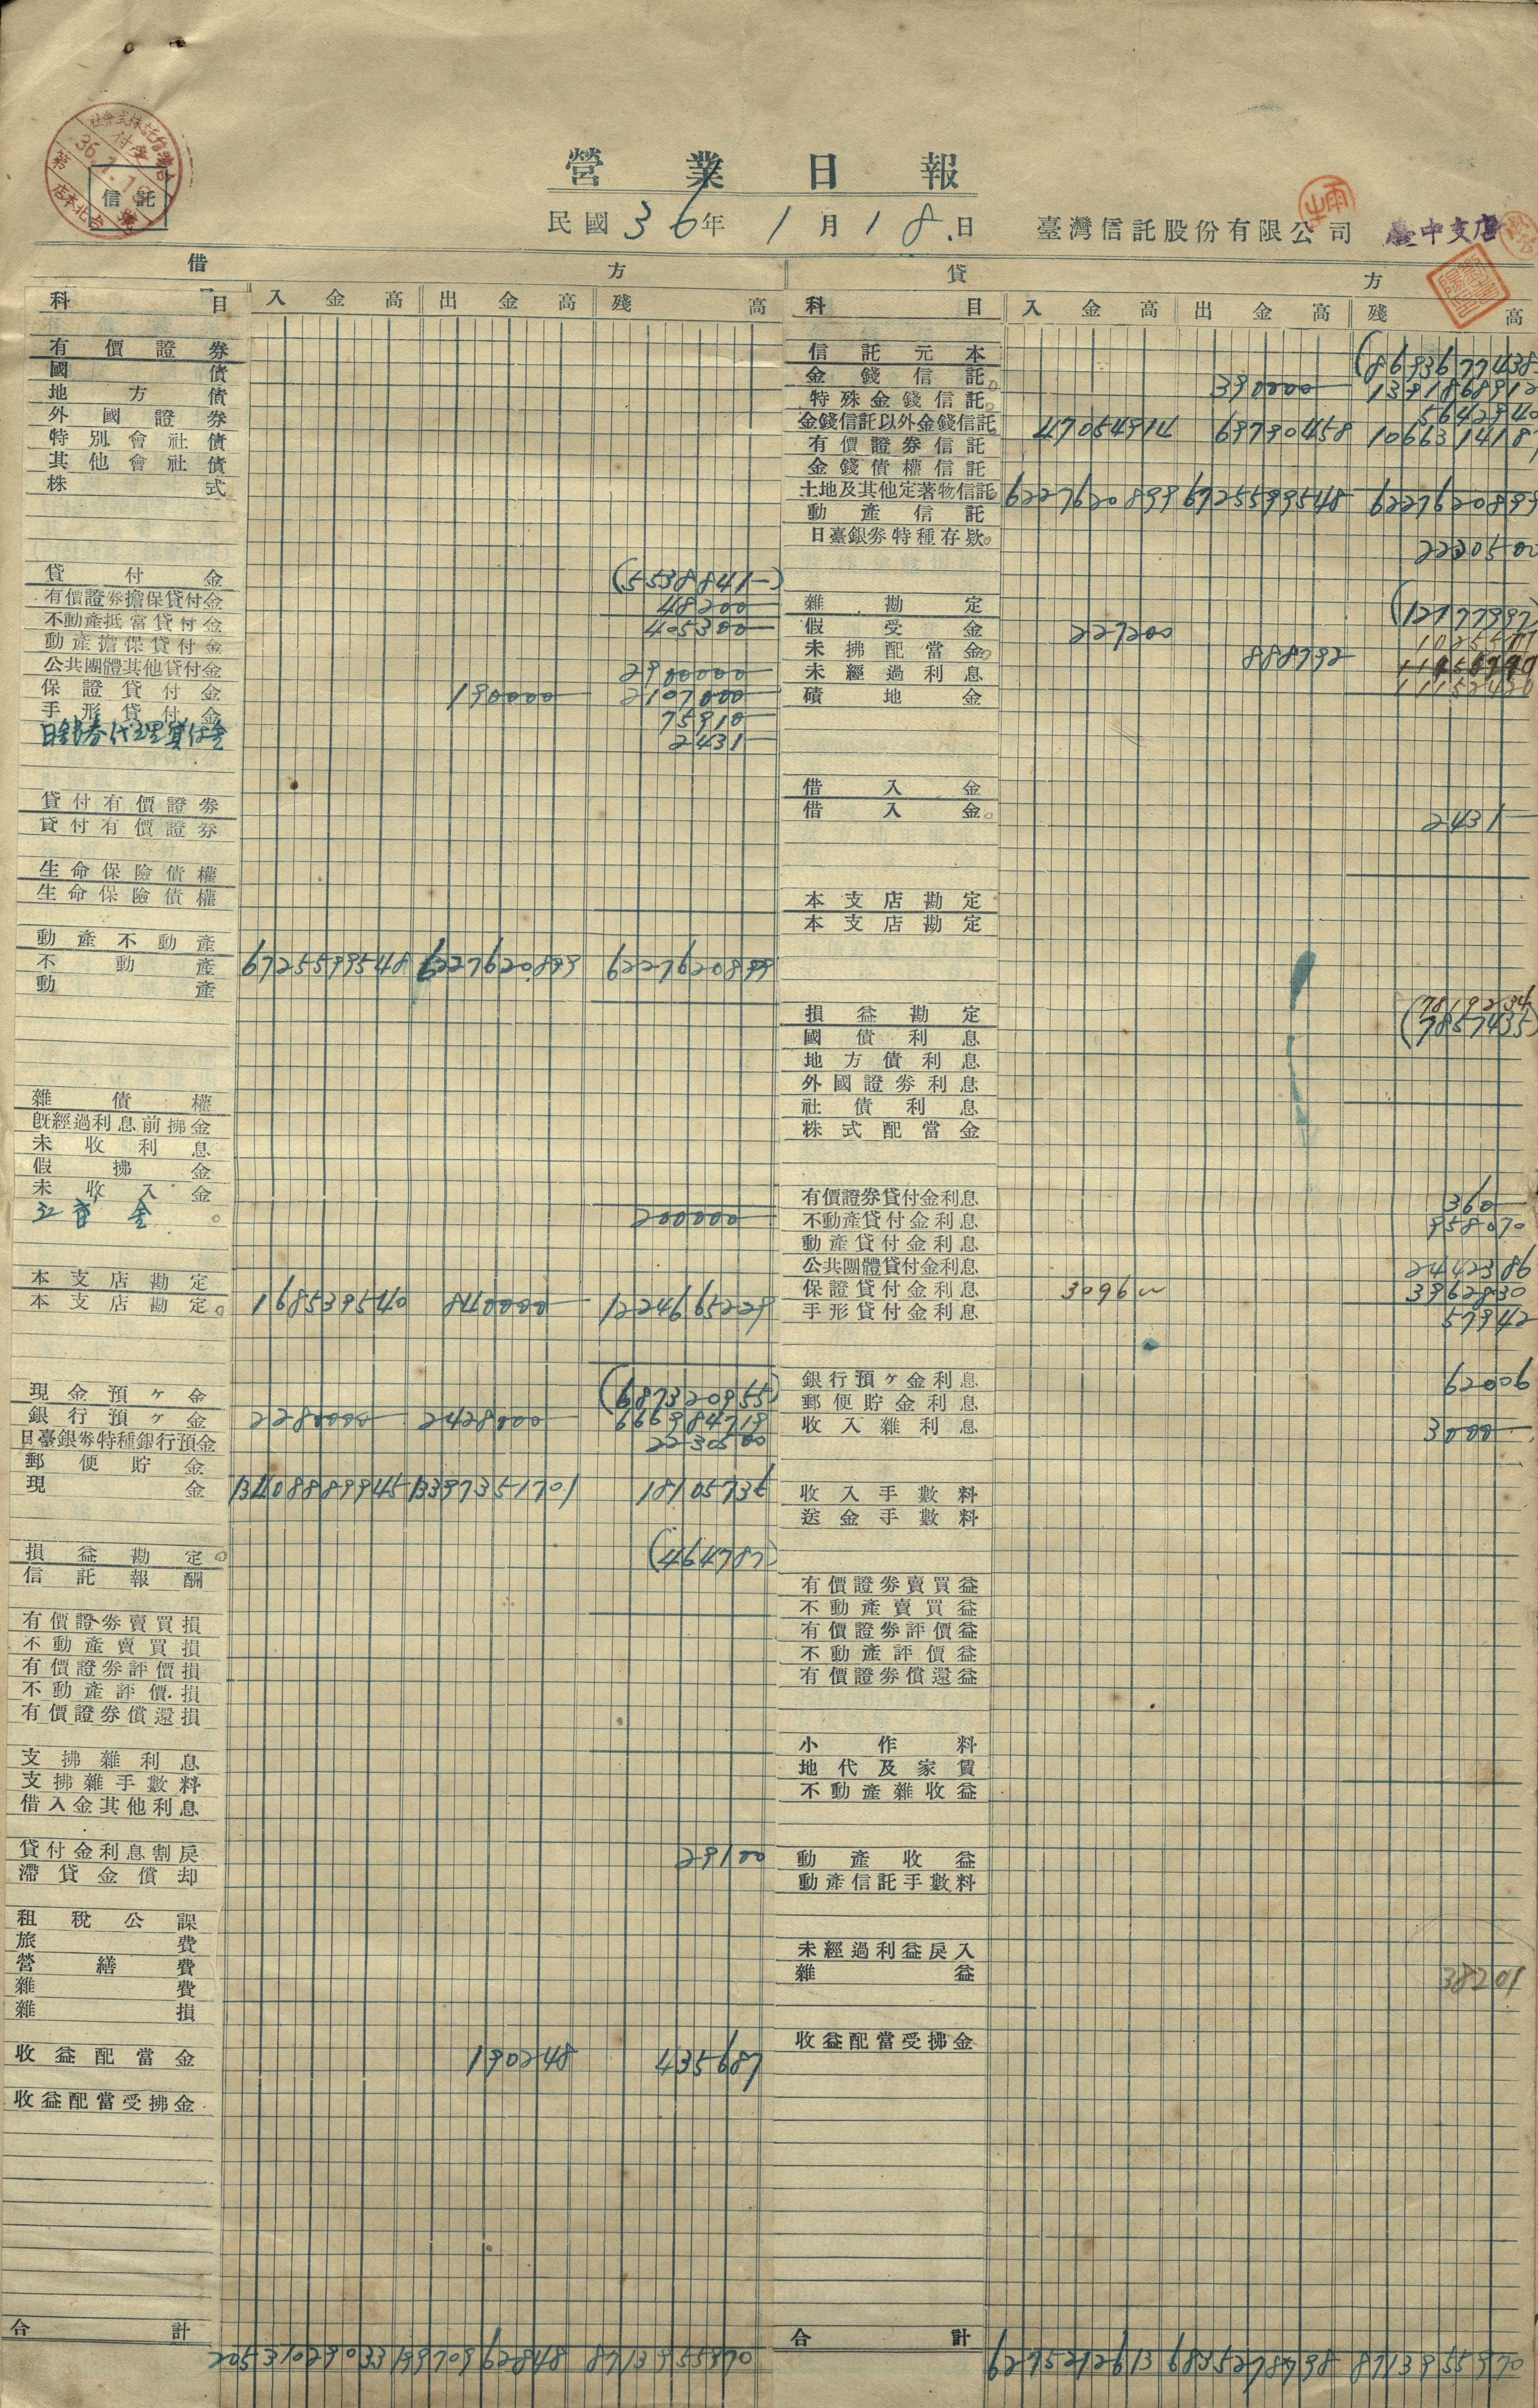 營業日報
民國36年1月18日
臺灣信託股份有限公司 臺中支店
信託
借方
科目 入金高 出金高 殘高
有價證券
國債
地方債
外國證券
特別會社債
其他會社債
株式
貸付金 (5538841—)
有價證券擔保貸付金 48200—
不動產抵當貸付金 405300—
動產擔保貸付金
公共團體其他貸付金 2900000—
保證貸付金 190000— 2107000—
手形貸付金 75910—
日銀券代理貸付金 2431—
貸付有價證券
貸付有價證券
生命保險債權
生命保險債權
動產不動產
不動產 6725599548 6227620899 6227620899
動產
雜債權
既經過利息前拂金
未收利息
假拂金
未收入金
200000—
本支店勘定
本支店勘定 168539540 840000— 1224665229
現金預ヶ金 (687320955)
銀行預ヶ金 2280000— 2428000— 666984719
日臺銀券特種銀行預金 2230500
郵便貯金
現金 13408889945 13397351701 18105736
損益勘定 (464787)
信託報酬
有價證券賣買損
不動產賣買損
有價證券評價損
不動產評價損
有價證券償還損
支拂雜利息
支拂雜手數料
借入金其他利息
貸付金利息割戾 29100
滯貸金償却
租稅公課
旅費
營繕費
雜費
雜損
收益配當金 190248 435687
收益配當受拂金
合計 20531029033 19970962848 8713955970
貸方
科目 入金高 出金高 殘高
信託元本 (8693677438
金錢信託 390000— 1391868912
特殊金錢信託 5642940
金錢信託以外金錢信託 47054914 69790458 1066314187
有價證券信託
金錢債權信託
土地及其他定著物信託 6227620899 6725599548 6227620899
動產信託
日臺銀券特種存款 2230500
雜勘定 (12177997)
假受金 227200
未拂配當金 888792
未經過利息
積地金
借入金
借入金 2431—
本支店勘定
本支店勘定
損益勘定 7819234
(7857435)
國債利息
地方債利息
外國證券利息
社債利息
株式配當金
有價證券貸付金利息 360—
不動產貸付金利息 958070
動產貸付金利息
公共團體貸付金利息 2442386
保證貸付金利息 309600 3962830
手形貸付金利息 57942
銀行預ヶ金利息 62006
郵便貯金利息
收入雜利息 3000—
收入手數料
送金手數料
有價證券賣買益
不動產賣買益
有價證券評價益
不動產評價益
有價證券償還益
小作料
地代及家賃
不動產雜收益
動產收益
動產信託手數料
未經過利益戾入
雜益 38201
收益配當受拂金
合計 6275212613 6835278798 8713955970